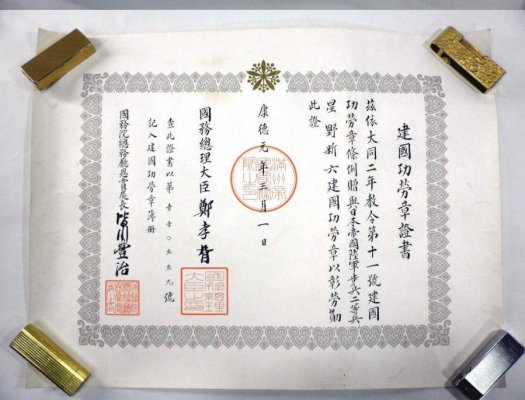 建國功勞章證書
茲依大同二年教令第十一號建國
功勞章條例贈與日本帝國陸軍步兵二等兵
星野新六建國功勞章以彰勞勛
此證
康德元年三月一日
國務總理大臣 鄭孝胥
查此證書以第 號
記入建國功勞章簿冊
國務院總務廳恩賞處長 皆川豐治